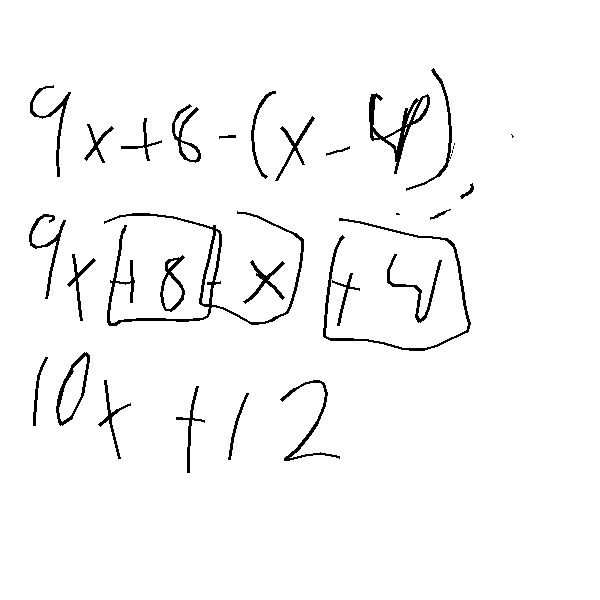 9x+8-(x-4)
9x+8-x+4
10x+12